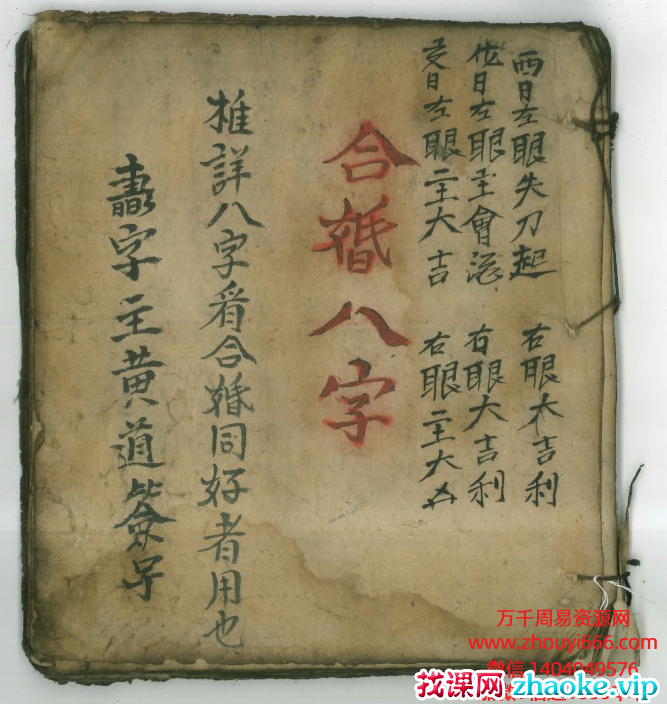 西日左眼失刀起 右眼大吉利
日左眼主會 右眼大吉利
日左眼主大吉 右眼主大
合婚八字
推詳八字看合婚同好者用也
字主黄道簽
万千周易资源网
www.zhouyi666.com
微信 1404049576
找课网zhaoke.vip